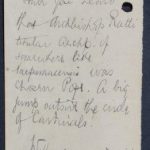 that Archbishop Ratti
titular Archp. of
somewhere like
was
chosen Pope. A big
jump outside the circle
of Cardinals.